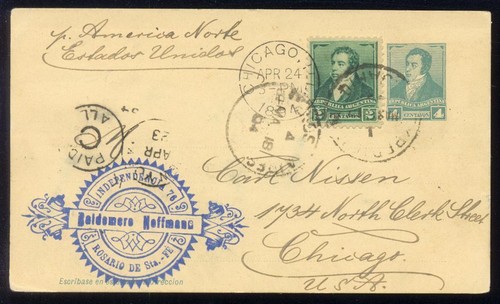 p. America Norte
Estados Unidos
CHICAGO, 
APR 24
REPUBLICA ARGENTINA
2 CENTAVOS 2
REPUBLICA ARGENTINA
4 CENTAVOS 4
PAID
C
ALL
APR
23
INDEPENDENCIA 76
Baldomero Hoffmann
ROSARIO DE Sta.-FE
Carl Nissen
1734 North Clerk Street
Chicago.
U.S.A.
Escríbase en
direccion